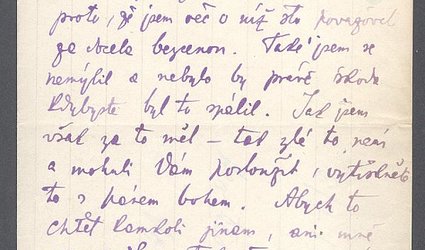 proto, že jsem věc o níž šlo považoval
za docela bezcenou. Také jsem se
nemýlil a nebylo by právě škoda
kdybyste byl to spálil. Jak jsem
však za to měl – tak zlé to není
a mohuli Vám posloužit, vytiskněte
to s pánem bohem. Abych to
chtěl kamkoli jinam, ani mne